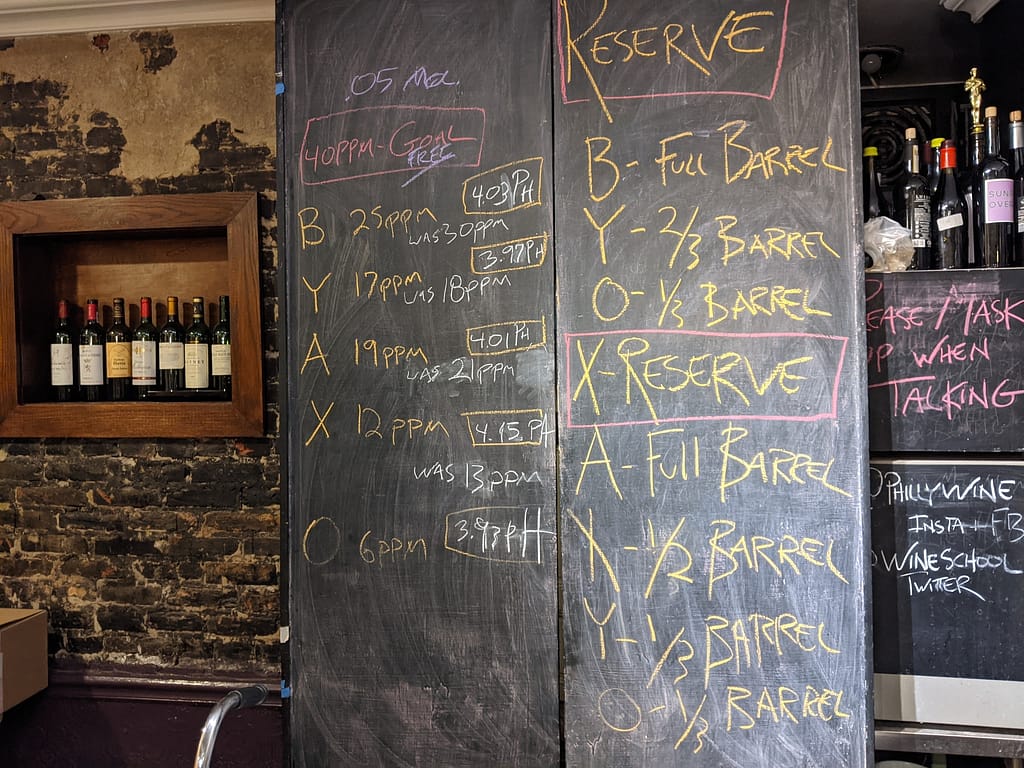 .05 Mol.
40PPM - GOAL
FREE
4.03 PH
B 25PPM
WAS 30PPM
3.97 PH
Y 17PPM
WAS 18PPM
4.01 PH
A 19PPM
WAS 21PPM
X 12PPM 4.15 PH
WAS 13PPM
O 6PPM 3.93 PH
RESERVE
B - FULL BARREL
Y - 2/3 BARREL
O - 1/3 BARREL
X-RESERVE
A - FULL BARREL
X - 1/2 BARREL
Y - 1/3 BARREL
O - 1/3 BARREL
EASE / MASK
UP WHEN
TALKING
@PHILLYWINE
INSTA + FB
@WINESCHOOL
TWITTER
SUN
OVER